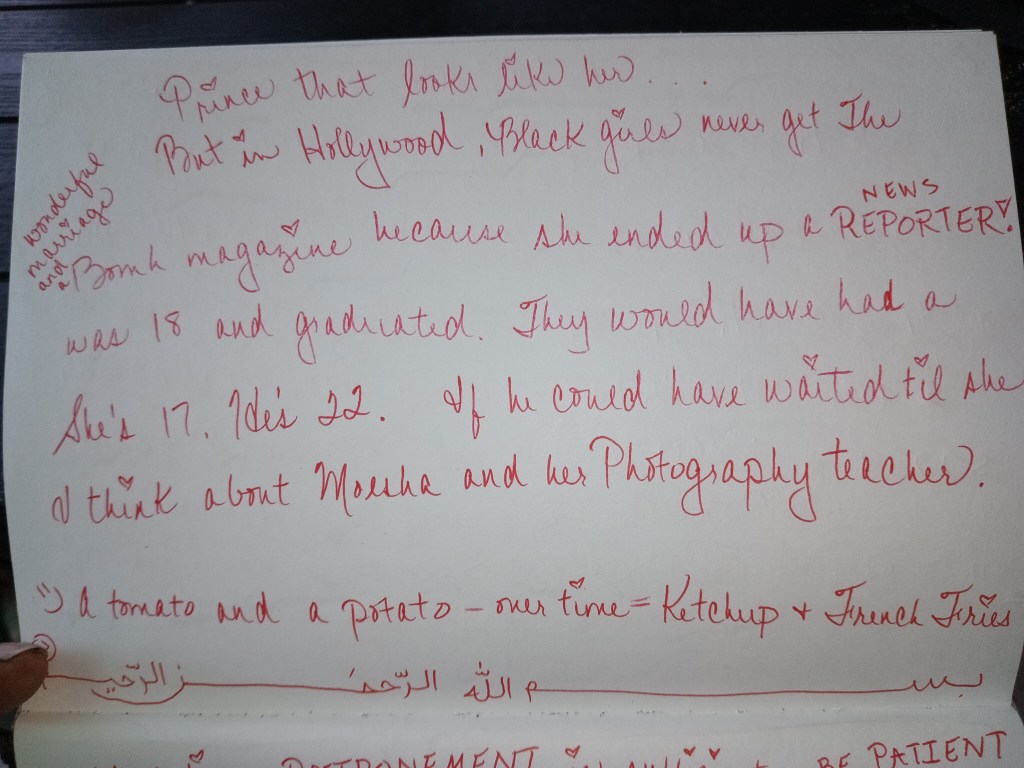 Prince that looks like her....
But in Hollywood, Black girls never get The
wonderful
marriage
and
a
NEWS
Bomb magazine because she ended up a REPORTER!
was 18 and graduated. They would have had a
She's 17. He's 22. If he could have waited til she
I think about Moesha and her Photography teacher.
=) A tomato and a potato - over time = Ketchup + French Fries
بسم الله الرحمن الرحيم
POSTPONEMENT BE PATIENT